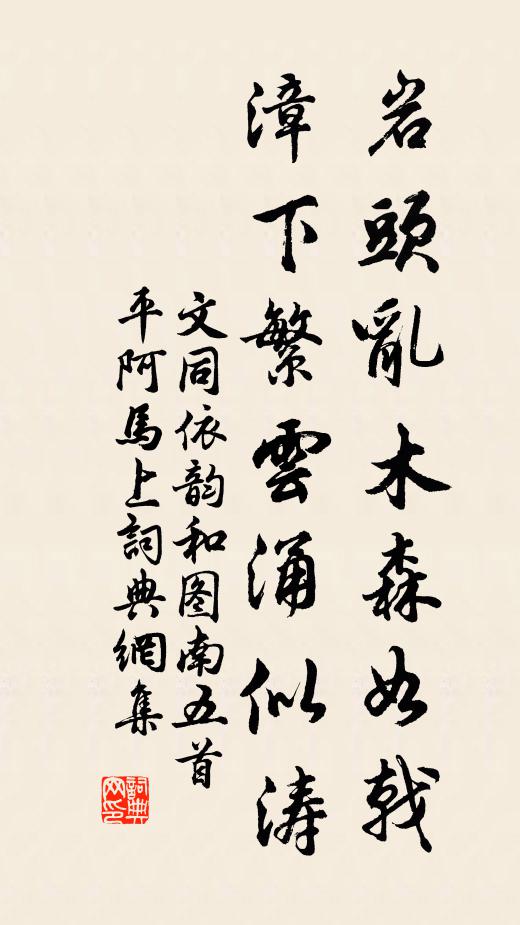 岩頭亂木森如戟
漳下繁雲涌似涛
文同依韵和图南五首
平阿馬上詞典網集
詞典网印